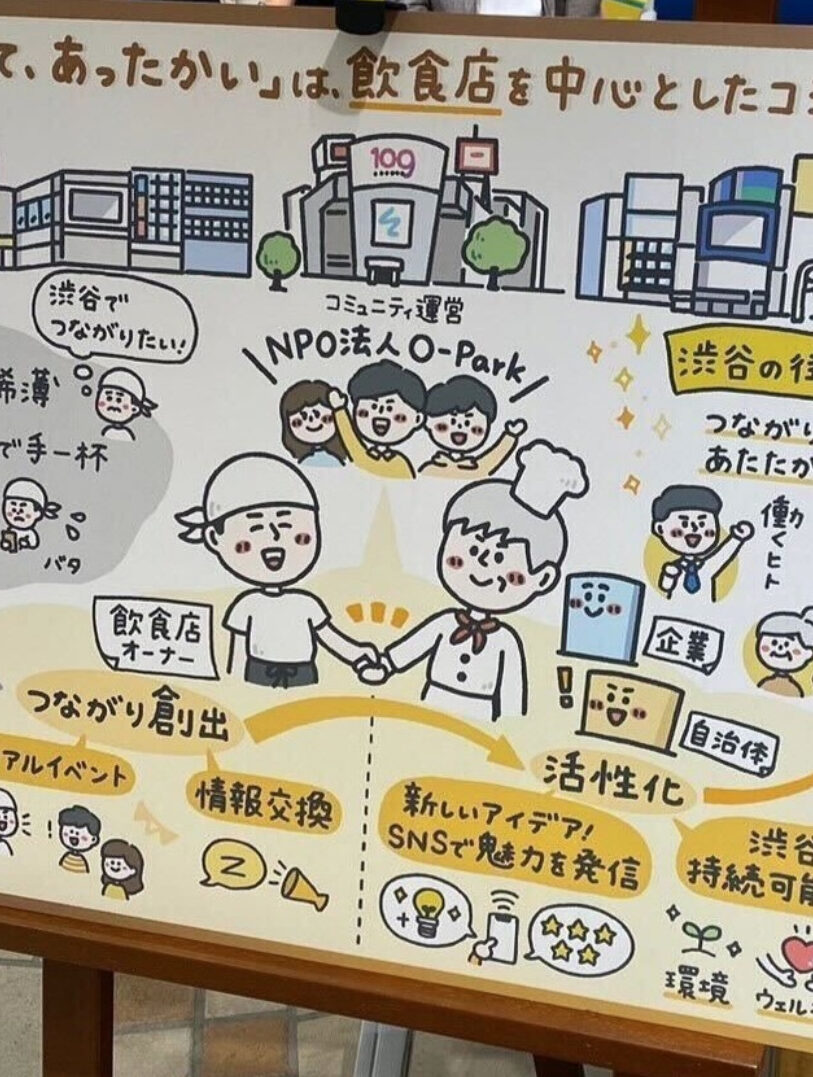 て、あったかい」は、飲食店を中心としたコ
109
渋谷で
つながりたい!
コミュニティ運営
NPO法人 O-Park
希薄
で手一杯
バタ
渋谷の
つながり
あたたか
働くヒト
飲食店
オーナー
企業
自治体
つながり創出
アルイベント
情報交換
活性化
新しいアイデア!
SNSで魅力を発信
渋谷
持続可能
環境
ウェル